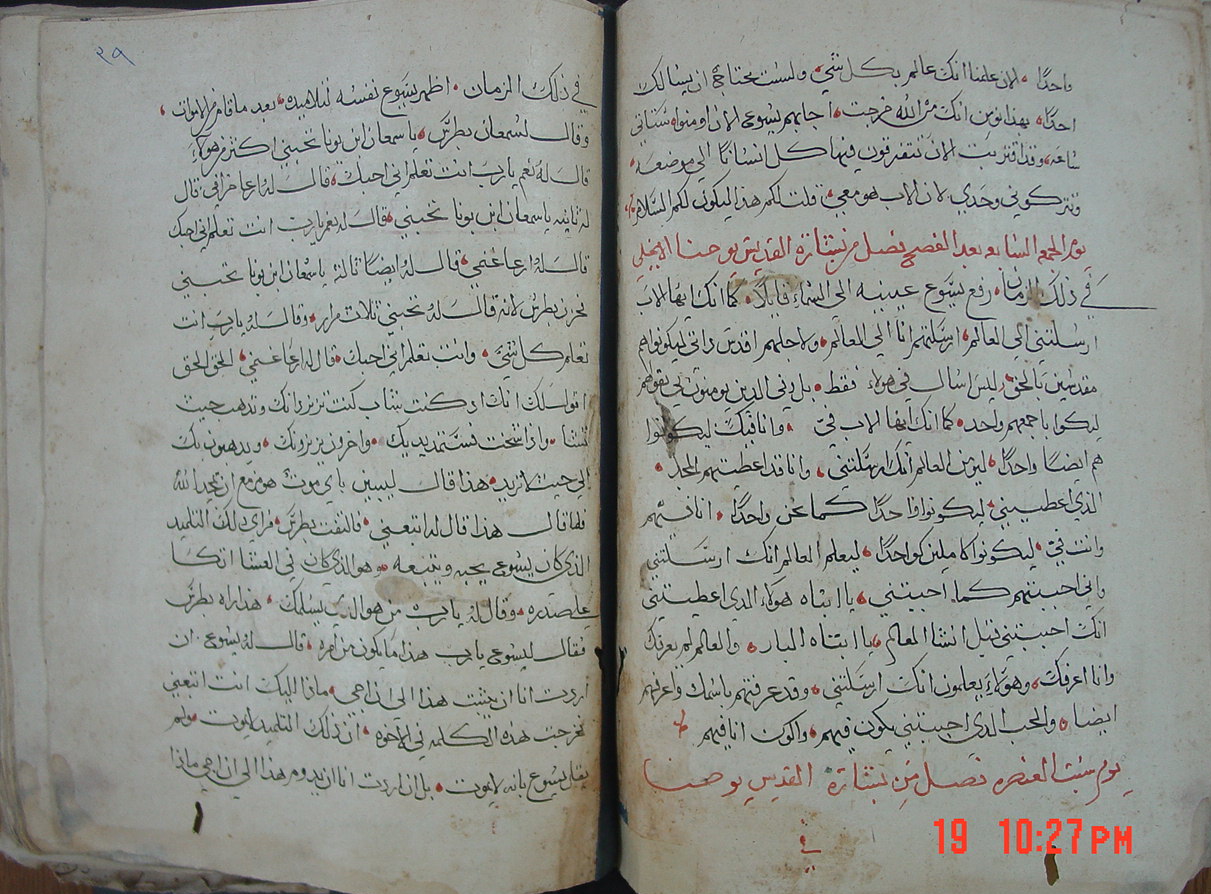 واحدًا. لان علمنا انك عالم بكل شي، ولست محتاج ان يسالك
احدًا. بهذا نومن انك من الله خرجت. اجابهم يسوع الان اومنوا. ستاتي
ساعه، وقد اقتربت الان تتفرقون فيها كل انسانًا الي موضعه.
وتتركوني وحدي. لان الاب هو معي. قلت لكم هذا ليكون لكم السلام.
يوم الجمعه السابعه بعد الفصح فصل من بشارة القديس يوحنا الانجيلي
في ذلك الزمان. رفع يسوع عينيه الي السماء قايلًا. كما انك ايها الاب
ارسلتني الي العالم. ارسلتهم انا الي العالم. ولاجلهم اقدس ذاتي ليكونوا هم
مقدسين بالحق. وليس اسال في هولاء فقط. بل وفي الدين يومنون لي بقولهم
ليكونوا باجمعهم واحد. كما انك ايها الاب فيّ. وانا فيك ليكونوا
هم ايضًا واحدًا. ليومن العالم انك ارسلتني. وانا قد اعطيتهم المجد.
الذي اعطيتني. ليكونوا واحدًا كما نحن واحدًا. انا فيهم
وانت فيّ. ليكونوا كاملين كواحدًا. ليعلم العالم انك ارسلتني
واني احببتهم كما احببتني. يا ابتاه هولاء الدي اعطيتني
انك احببتني قبل انشا العالم. يا ابتاه البار. والعالم لم يعرفك
وانا اعرفك. وهولاء يعلمون انك ارسلتني. وقد عرفتهم باسمك واعرفهم
ايضا. والحب الدي احببتني يكون فيهم. واكون انا فيهم
يوم سبت العنصره فصل من بشارة القديس يوحنا
في
٢٩
في ذلك الزمان. اظهر يسوع نفسه لتلاميده. بعد ما قام من الاموات.
وقال لسمعان بطرس. يا سمعان ابن يونا تحبني اكتر من هولاء
قال له نعم يا رب انت تعلم اني احبك. قال له ارعا خرافي قال
له تانيه يا سمعان ابن يونا تحبني. قال له نعم يا رب انت تعلم اني احبك
قال له ارعا غنمي. قال له ايضًا تالتة يا سمعان ابن يونا تحبني
فحزن بطرس لانه قال له تحبني تلات مرار. وقال له يا رب انت
تعلم كل شي. وانت تعلم اني احبك. قال له ارعا غنمي. الحق الحق
اقول لك انك اد كنت شاب كنت تزنر داتك وتدهب حيت
تشا. وادا شخت فستمد يديك. واخرون يزنرونك. ويدهبون بك
الي حيت لا تريد. هذا قال ليبين باي موت هو مزمع ان يمجد الله
فلما قال هذا قال له اتبعني. فالتفت بطرس. فراي دلك التلميد
الذي كان يسوع يحبه يتبعه. وهو الذي كان في العشا اتكا
علي صدره. وقال له يا رب من هو الدي يسلمك. هذا راه بطرس
فقال ليسوع يا رب هذا ما يكون من امره. قال له يسوع ان
اردت انا ان يتبت هذا الي ان اجي. مادا اليك انت اتبعني
فخرجت هذه الكلمه في الاخوه. ان ذلك التلميد لا يموت. ولم
يقل يسوع بانه لا يموت. بل ان اردت انا ان يدوم هذا الي ان اجي مادا
19 10:27PM